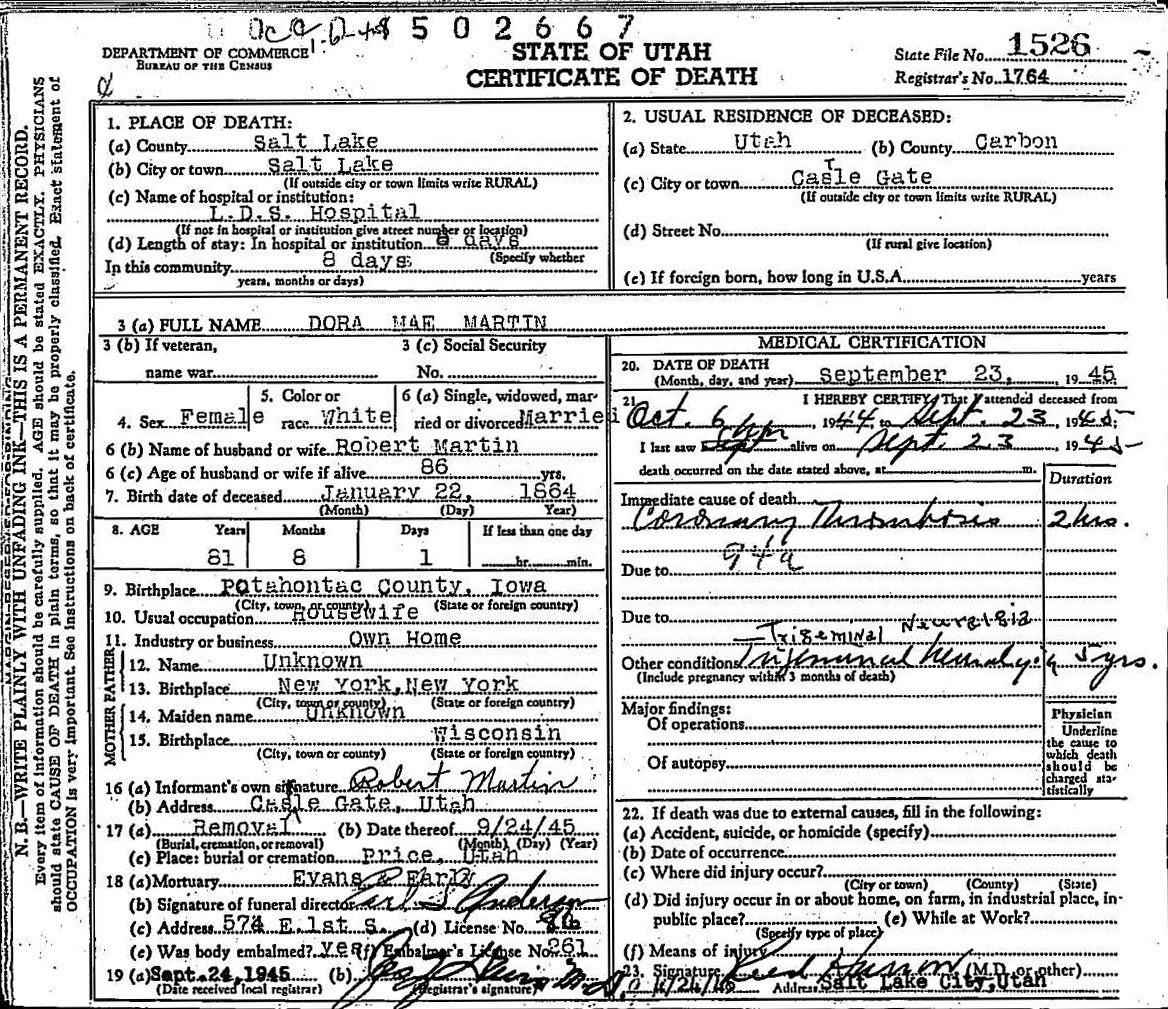 5 0 2 6 6 7
DEPARTMENT OF COMMERCE
BUREAU OF THE CENSUS
STATE OF UTAH
CERTIFICATE OF DEATH
State File No. 1526
Registrar's No. 1764
N. B.—WRITE PLAINLY WITH UNFADING INK—THIS IS A PERMANENT RECORD.
Every item of information should be carefully supplied. AGE should be stated EXACTLY. PHYSICIANS
should state CAUSE OF DEATH in plain terms, so that it may be properly classified. Exact statement of
OCCUPATION is very important. See instructions on back of certificate.
1. PLACE OF DEATH:
(a) County Salt Lake
(b) City or town Salt Lake
(If outside city or town limits write RURAL)
(c) Name of hospital or institution:
L.D.S. Hospital
(If not in hospital or institution give street number or location)
(d) Length of stay: In hospital or institution 8 days
(Specify whether
In this community 8 days
years, months or days)
2. USUAL RESIDENCE OF DECEASED:
(a) State Utah (b) County Carbon
(c) City or town Castle Gate
(If outside city or town limits write RURAL)
(d) Street No.
(If rural give location)
(e) If foreign born, how long in U.S.A. years
3 (a) FULL NAME DORA MAE MARTIN
3 (b) If veteran, 3 (c) Social Security
name war No.
4. Sex Female 5. Color or race White 6 (a) Single, widowed, married or divorced Married
6 (b) Name of husband or wife Robert Martin
6 (c) Age of husband or wife if alive 86 yrs.
7. Birth date of deceased January 22, 1864
(Month) (Day) Year)
8. AGE Years Months Days If less than one day
81 8 1 hr. min.
9. Birthplace Potahontac County, Iowa
(City, town, or county) (State or foreign country)
10. Usual occupation Housewife
11. Industry or business Own Home
FATHER
12. Name Unknown
13. Birthplace New York, New York
(City, town or county) (State or foreign country)
MOTHER
14. Maiden name Unknown
15. Birthplace Wisconsin
(City, town or county) (State or foreign country)
16 (a) Informant's own signature Robert Martin
(b) Address Casle Gate, Utah
17 (a) Removal (b) Date thereof 9/24/45
(Burial, cremation, or removal) (Month) (Day) (Year)
(c) Place: burial or cremation Price, Utah
18 (a) Mortuary Evans & Early
(b) Signature of funeral director Earl S Anderson
(c) Address 574 E. 1st S. (d) License No.
(e) Was body embalmed? yes (f) Embalmer's License No. 261
19 (a) Sept. 24, 1945 (b) M.D.
(Date received local registrar) (Registrar's signature)
MEDICAL CERTIFICATION
20. DATE OF DEATH
(Month, day, and year) September 23, 1945
21. I HEREBY CERTIFY That I attended deceased from
Oct. 6 1944, to Sept. 23, 1945;
I last saw her alive on Sept. 23 1945
death occurred on the date stated above, at m.
Duration
Immediate cause of death
Coronary Thrombosis 2 hrs.
94a
Due to
Due to
Trigeminal Neuralgia
Other conditions Trigeminal Neuralgia 5 yrs.
(Include pregnancy within 3 months of death)
Major findings:
Of operations
Of autopsy
Physician
Underline
the cause to
which death
should be
charged sta-
tistically
22. If death was due to external causes, fill in the following:
(a) Accident, suicide, or homicide (specify)
(b) Date of occurrence
(c) Where did injury occur?
(City or town) (County) (State)
(d) Did injury occur in or about home, on farm, in industrial place, in-
public place? (e) While at Work?
(Specify type of place)
(f) Means of injury
23. Signature (M.D. or other)
Address Salt Lake City, Utah